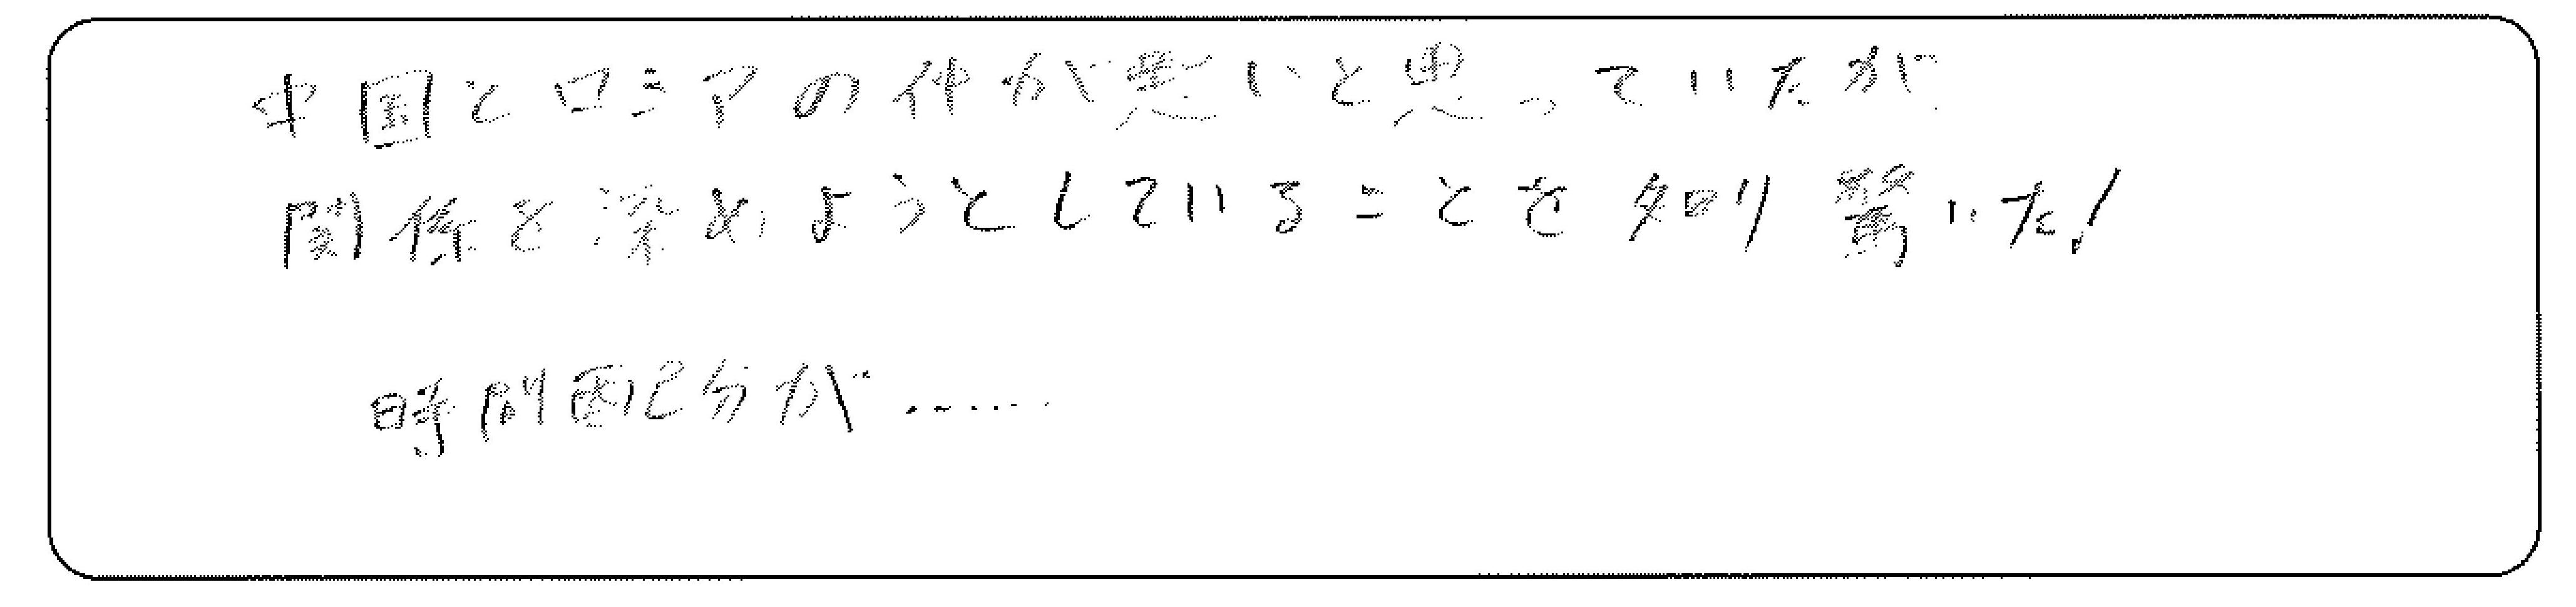 中国とロシアの仲が悪いと思っていたが
関係を深めようとしていることを知り驚いた!
時間配分が……